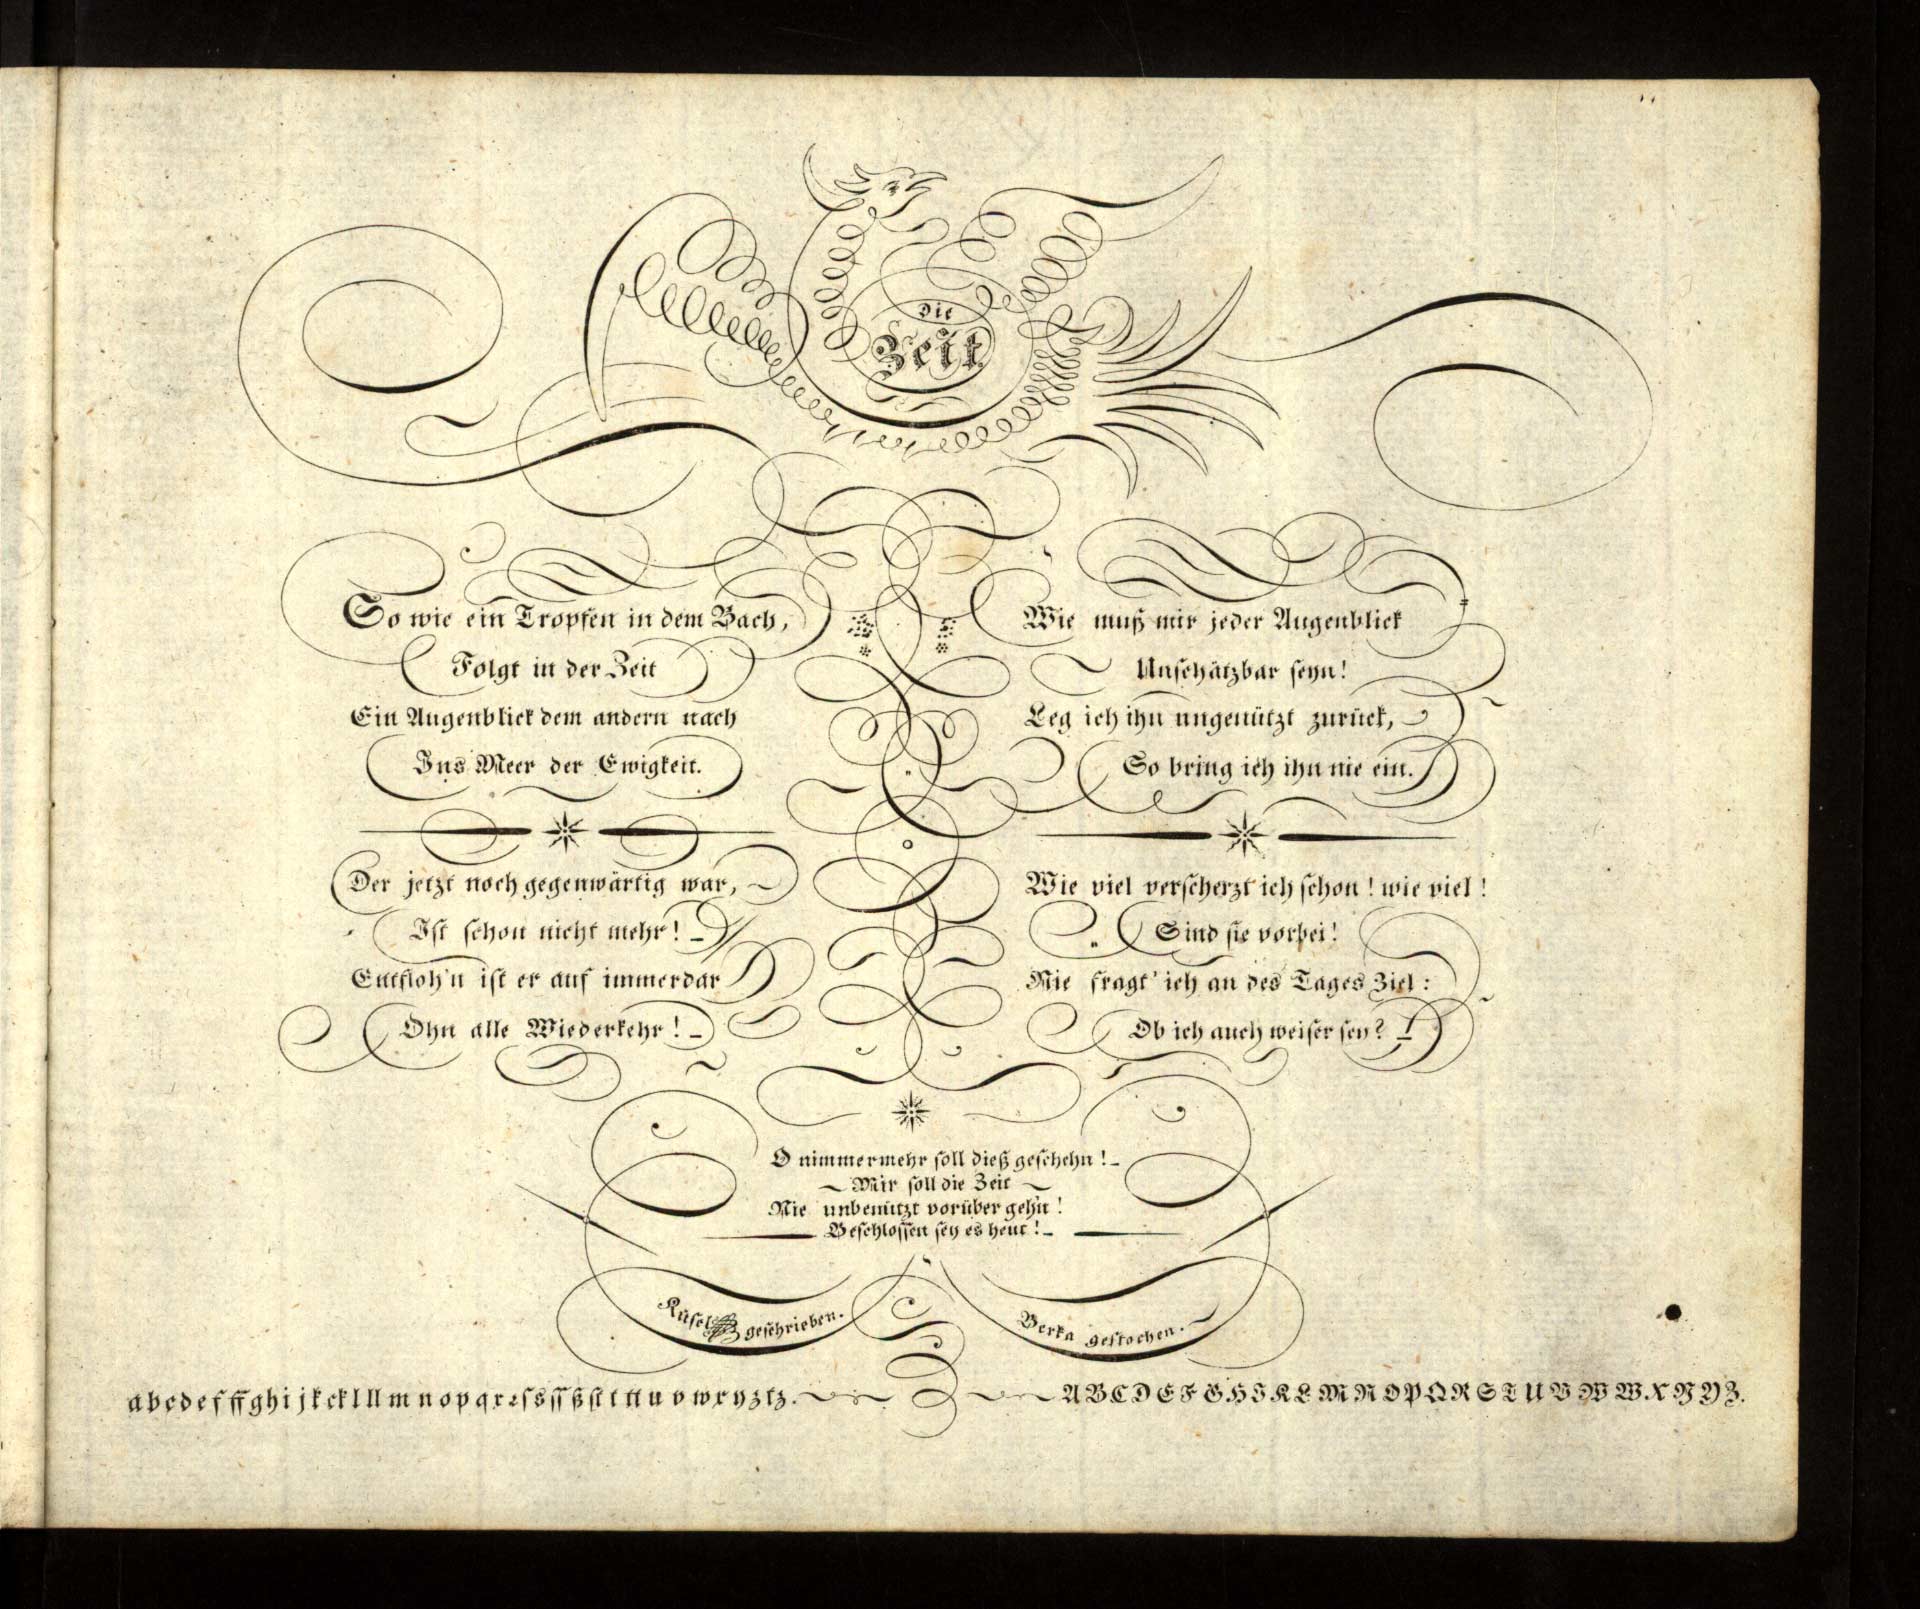 Die
Zeit.
So wie ein Tropfen in dem Bach,
Folgt in der Zeit
Ein Augenblick dem andern nach
Ins Meer der Ewigkeit.
Der jetzt noch gegenwärtig war,
Ist schon nicht mehr! –
Entfloh'n ist er auf immerdar
Ohn alle Wiederkehr! –
Wie muß mir jeder Augenblick
Unschätzbar seyn!
Leg ich ihn ungenützt zurück,
So bring ich ihn nie ein.
Wie viel verscherzt ich schon! wie viel!
Sind sie vorbei!
Nie fragt' ich an des Tages Ziel:
Ob ich auch weiser sey? –
O nimmermehr soll dieß geschehn! –
Mir soll die Zeit
Nie unbenützt vorüber geh'n!
Beschlossen sey es heut! –
geschrieben.
Berka gestochen.
a b c d e f ff g h i j k ck l ll m n o p q r ꝛ ſ s ſſ ß ſt t tt u v w x y z tz.
A B C D E F G H I K L M N O P Q R S T U V W W. X Y Y Z.